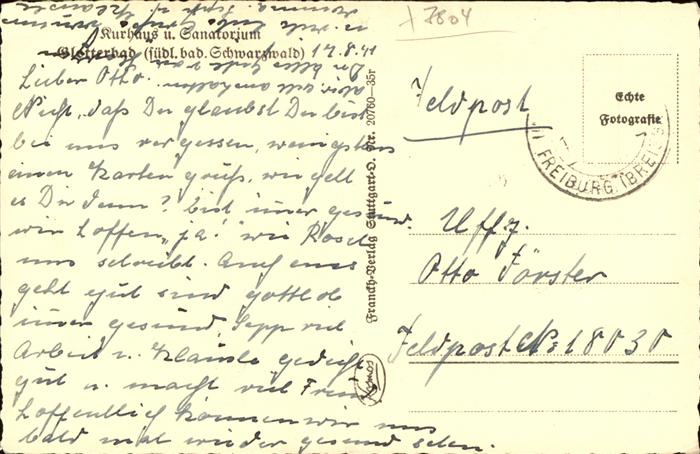 Kurhaus u. Sanatorium
Glotterbad (südl. bad. Schwarzwald) 17.8.41
Lieber Otto.
Nicht, daß Du glaubst Du bist
bei uns vergessen, wenigstens
einen Karten gruß, wie geht
es Dir denn? bist imer gesund.
wir hoffen „ja! wie Rosel
uns schreibt. Auch uns
geht gut sind gottlob
imer gesund, Sepp viel
Arbeit u. Kläusle gedeiht
gut u. macht viel Freude
hoffentlich können wir uns
bald mal wieder gesund sehen.
Franckh-Verlag Stuttgart-O. Nr. 20760—35r
Kosmos
7804
Feldpost
Echte
Fotografie
FREIBURG (BREISG
Uffz.
Otto Förster
Feldpost No 18030